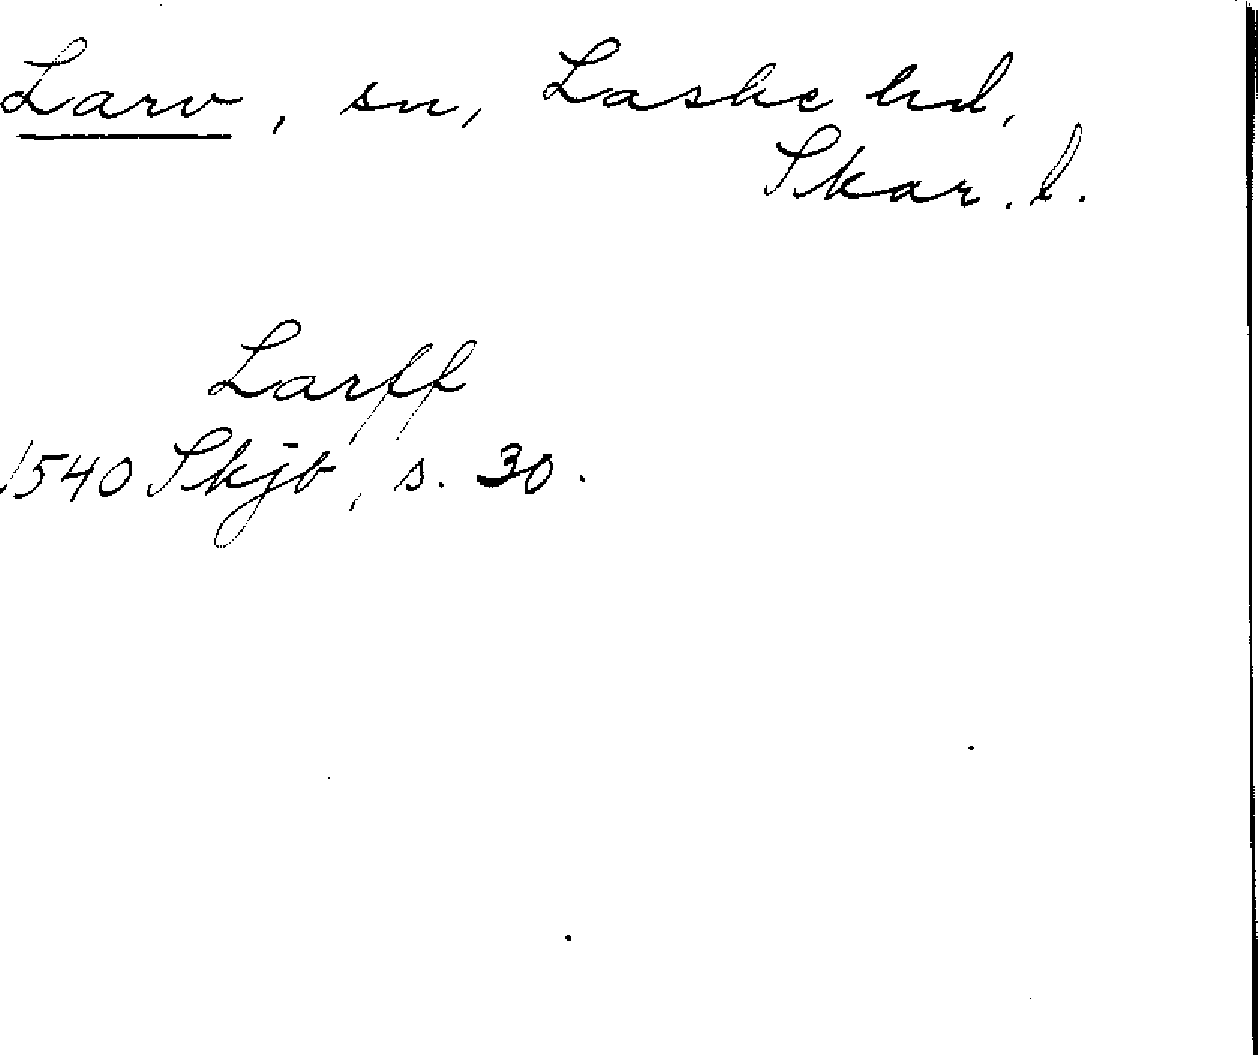 Larv, sn, Laske hd,
Skar. l.
Larff
1540 Skjb, s. 30.